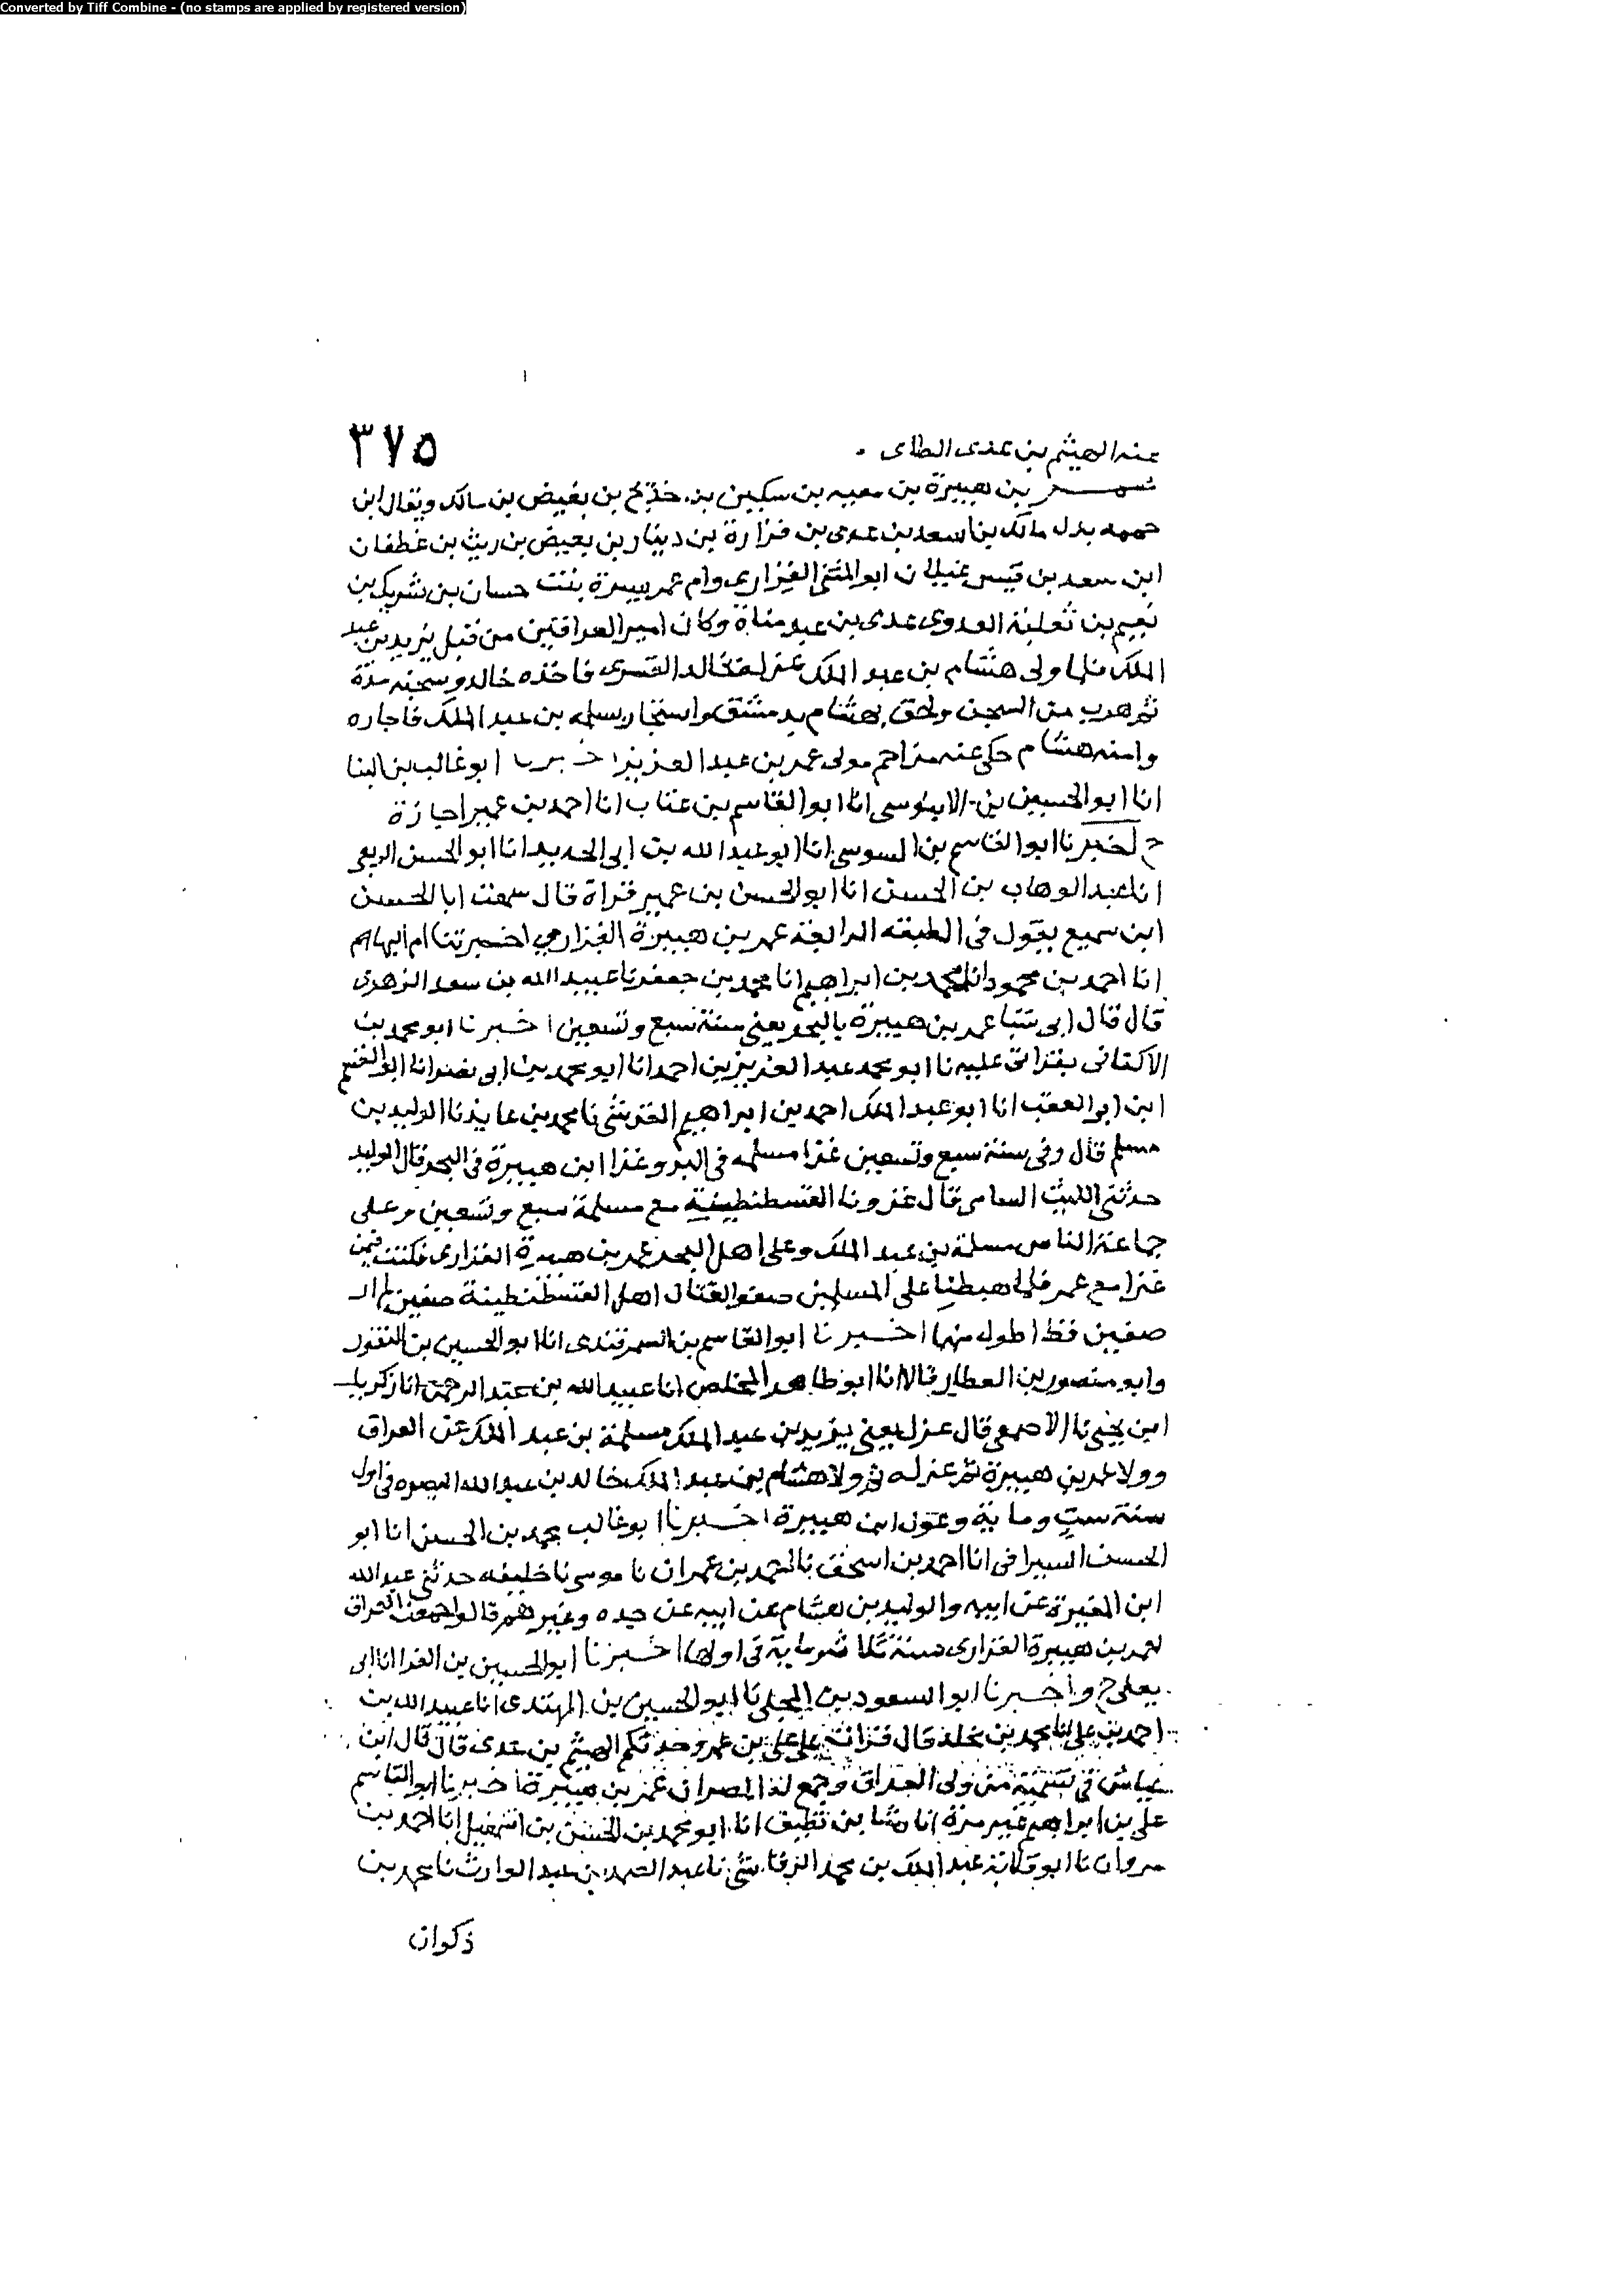 Converted by Tiff Combine - (no stamps are applied by registered version)
٣٧٥
عنه الهيثم بن عدى الطاى
عمر بن هبيرة بن معيه بن سكين بن خديج بن بغيض بن مالك ويقال ابن
حممه بدل مالك بن سعد بن عدى بن فزارة بن دينار بن بغيض بن ريث بن غطفان
ابن سعد بن قيس عيلان ابو المثنى الفزارى وام عمر بسرة بنت حسان بن شريك بن
نعيم بن ثعلبة العدوى عدى بن عبد مناة وكان امير العراقين من قبل يزيد بن عبد
الملك فلما ولى هشام بن عبد الملك عزله بخالد القسرى فاخذه خالد وسجنه مدة
ثم هرب من السجن ولحق بهشام بدمشق واستجار بمسلمه بن عبد الملك فاجاره
وامنه هشام حكى عنه مزاحم مولى عمر بن عبد العزيز اخبرنا ابو غالب بن البنا
انا ابو الحسين بن الابنوسى انا ابو القاسم بن عتاب انا احمد بن عمير اجازة
ح اخبرنا ابو القاسم بن السوسى انا ابو عبد الله بن ابى الحديد انا ابو الحسن الربعى
انا عبد الوهاب بن الحسن انا ابو الحسن بن عمير قراة قال سمعت ابا الحسين
ابن سميع يقول فى الطبقه الرابعة عمر بن هبيرة الفزارى اخبرتنا ام البهاء
انا احمد بن محمود انا محمد بن ابراهيم انا محمد بن جعفر نا عبيد الله بن سعد الزهرى
قال قال ابى شتا عمر بن هبيرة بالبحر يعنى سنة سبع وتسعين اخبرنا ابو محمد بن
الاكفانى بقراتى عليه نا ابو محمد عبد العزيز بن احمد انا ابو محمد بن ابى نصر انا ابو القسم
ابن ابى العقب انا ابو عبد الملك احمد بن ابراهيم القرشى نا محمد بن عايذ نا الوليد بن
مسلم قال وفى سنة سبع وتسعين غزا مسلمه فى البر وغزا ابن هبيرة فى البحر قال الوليد
حدثنى الليث قال غزونا القسطنطينية مع مسلمة سبع وتسعين وعلى
جماعة الناس مسلمة بن عبد الملك وعلى اهل البحر عمر بن هبيرة الفزارى فكنت فيمن
غزا مع عمر فلما هبطنا على المسلمين صفوا لقتال اهل القسطنطينة صفين لم ار
صفين قط اطول منها اخبرنا ابو القاسم بن السمرقندى انا ابو الحسين بن النقور
وابو منصور بن العطار قالا نا ابو طاهر المخلص انا عبيد الله بن عبد الرحمن انا زكريا
ابن يحيى نا الاصمعى قال عزل يعنى يزيد بن عبد الملك مسلمة بن عبد الملك عن العراق
وولا عمر بن هبيرة ثم عزله ثم ولا هشام بن عبد الملك خالد بن عبد الله البصره فى اول
سنة ست وماية وعزل ابن هبيرة اخبرنا ابو غالب محمد بن الحسن انا ابو
الحسن السيرافى انا احمد بن اسحق نا احمد بن عمران نا موسى نا خليفه حدثنى عبد الله
ابن المغيرة عن ابيه والوليد بن هشام عن ابيه عن جده وغيرهم قالوا جمعت العراق
لعمر بن هبيرة الفزارى سنة ثلاث وماية فى اولها اخبرنا ابو الحسين بن الفرا انا ابى
يعلى ح واخبرنا ابو السعود بن المجلى نا ابو الحسين بن المهتدى انا عبيد الله بن
احمد بن على نا محمد بن مخلد قال قرات على على بن عمرو حدثكم الهيثم بن عدى قال قال ابن
عياش فى تسمية من ولى العراق وجمع له المصران عمر بن هبيرة اخبرنا ابو القاسم
على بن ابراهيم غير مرة انا رشا بن نظيف انا ابو محمد الحسن بن اسمعيل انا احمد بن
مروان نا ابو قلابة عبد الملك بن محمد الرقاشى نا عبد الصمد بن عبد الوارث نا محمد بن
ذكوان